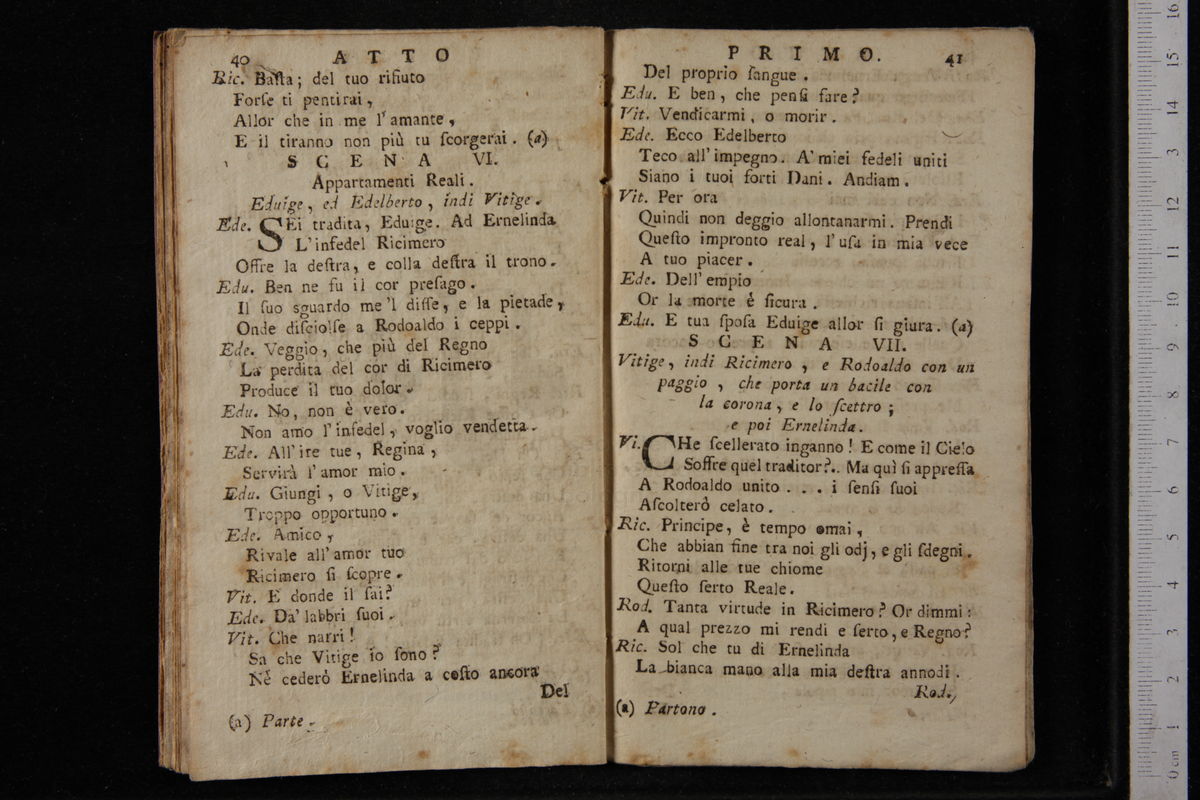 40 ATTO
Ric. Baſta; del tuo rifiuto
Forſe ti pentirai,
Allor che in me l'amante,
E il tiranno non più tu ſcorgerai. (a)
SCENA VI.
Appartamenti Reali.
Eduige, ed Edelberto, indi Vitige.
Ede. SEi tradita, Eduige. Ad Ernelinda
L'infedel Ricimero
Offre la deſtra, e colla deſtra il trono.
Edu. Ben ne fu il cor preſago.
Il ſuo sguardo me 'l diſſe, e la pietade,
Onde diſciolſe a Rodoaldo i ceppi.
Ede. Veggio, che più del Regno
La perdita del cor di Ricimero
Produce il tuo dolor.
Edu. No, non è vero.
Non amo l'infedel, voglio vendetta.
Ede. All'ire tue, Regina,
Servirà l'amor mio.
Edu. Giungi, o Vitige,
Troppo opportuno.
Ede. Amico,
Rivale all'amor tuo
Ricimero ſi ſcopre.
Vit. E donde il ſai?
Ede. Da' labbri ſuoi.
Vit. Che narri!
Sa che Vitige io ſono?
Nè cederò Ernelinda a coſto ancora
Del
(a) Parte.
PRIMO. 41
Del proprio ſangue.
Edu. E ben, che penſi fare?
Vit. Vendicarmi, o morir.
Ede. Ecco Edelberto
Teco all'impegno. A' miei fedeli uniti
Siano i tuoi forti Dani. Andiam.
Vit. Per ora
Quindi non deggio allontanarmi. Prendi
Queſto impronto real, l'uſa in mia vece
A tuo piacer.
Ede. Dell'empio
Or la morte é ſicura.
Edu. E tua ſpoſa Eduige allor ſi giura. (a)
SCENA VII.
Vitige, indi Ricimero, e Rodoaldo con un
paggio, che porta un bacile con
la corona, e lo ſcettro;
e poi Ernelinda.
Vi. CHe ſcellerato inganno! E come il Cielo
Soffre quel traditor?.. Ma quì ſi appreſſa
A Rodoaldo unito . . . i ſenſi ſuoi
Aſcolterò celato.
Ric. Principe, è tempo omai,
Che abbian fine tra noi gli odj, e gli ſdegni.
Ritorni alle tue chiome
Queſto ſerto Reale.
Rod. Tanta virtude in Ricimero? Or dimmi:
A qual prezzo mi rendi e ſerto, e Regno?
Ric. Sol che tu di Ernelinda
La bianca mano alla mia deſtra annodi.
Rod.
(a) Partono.
16
15
14
13
12
11
10
9
8
7
6
5
4
3
2
1
0 cm